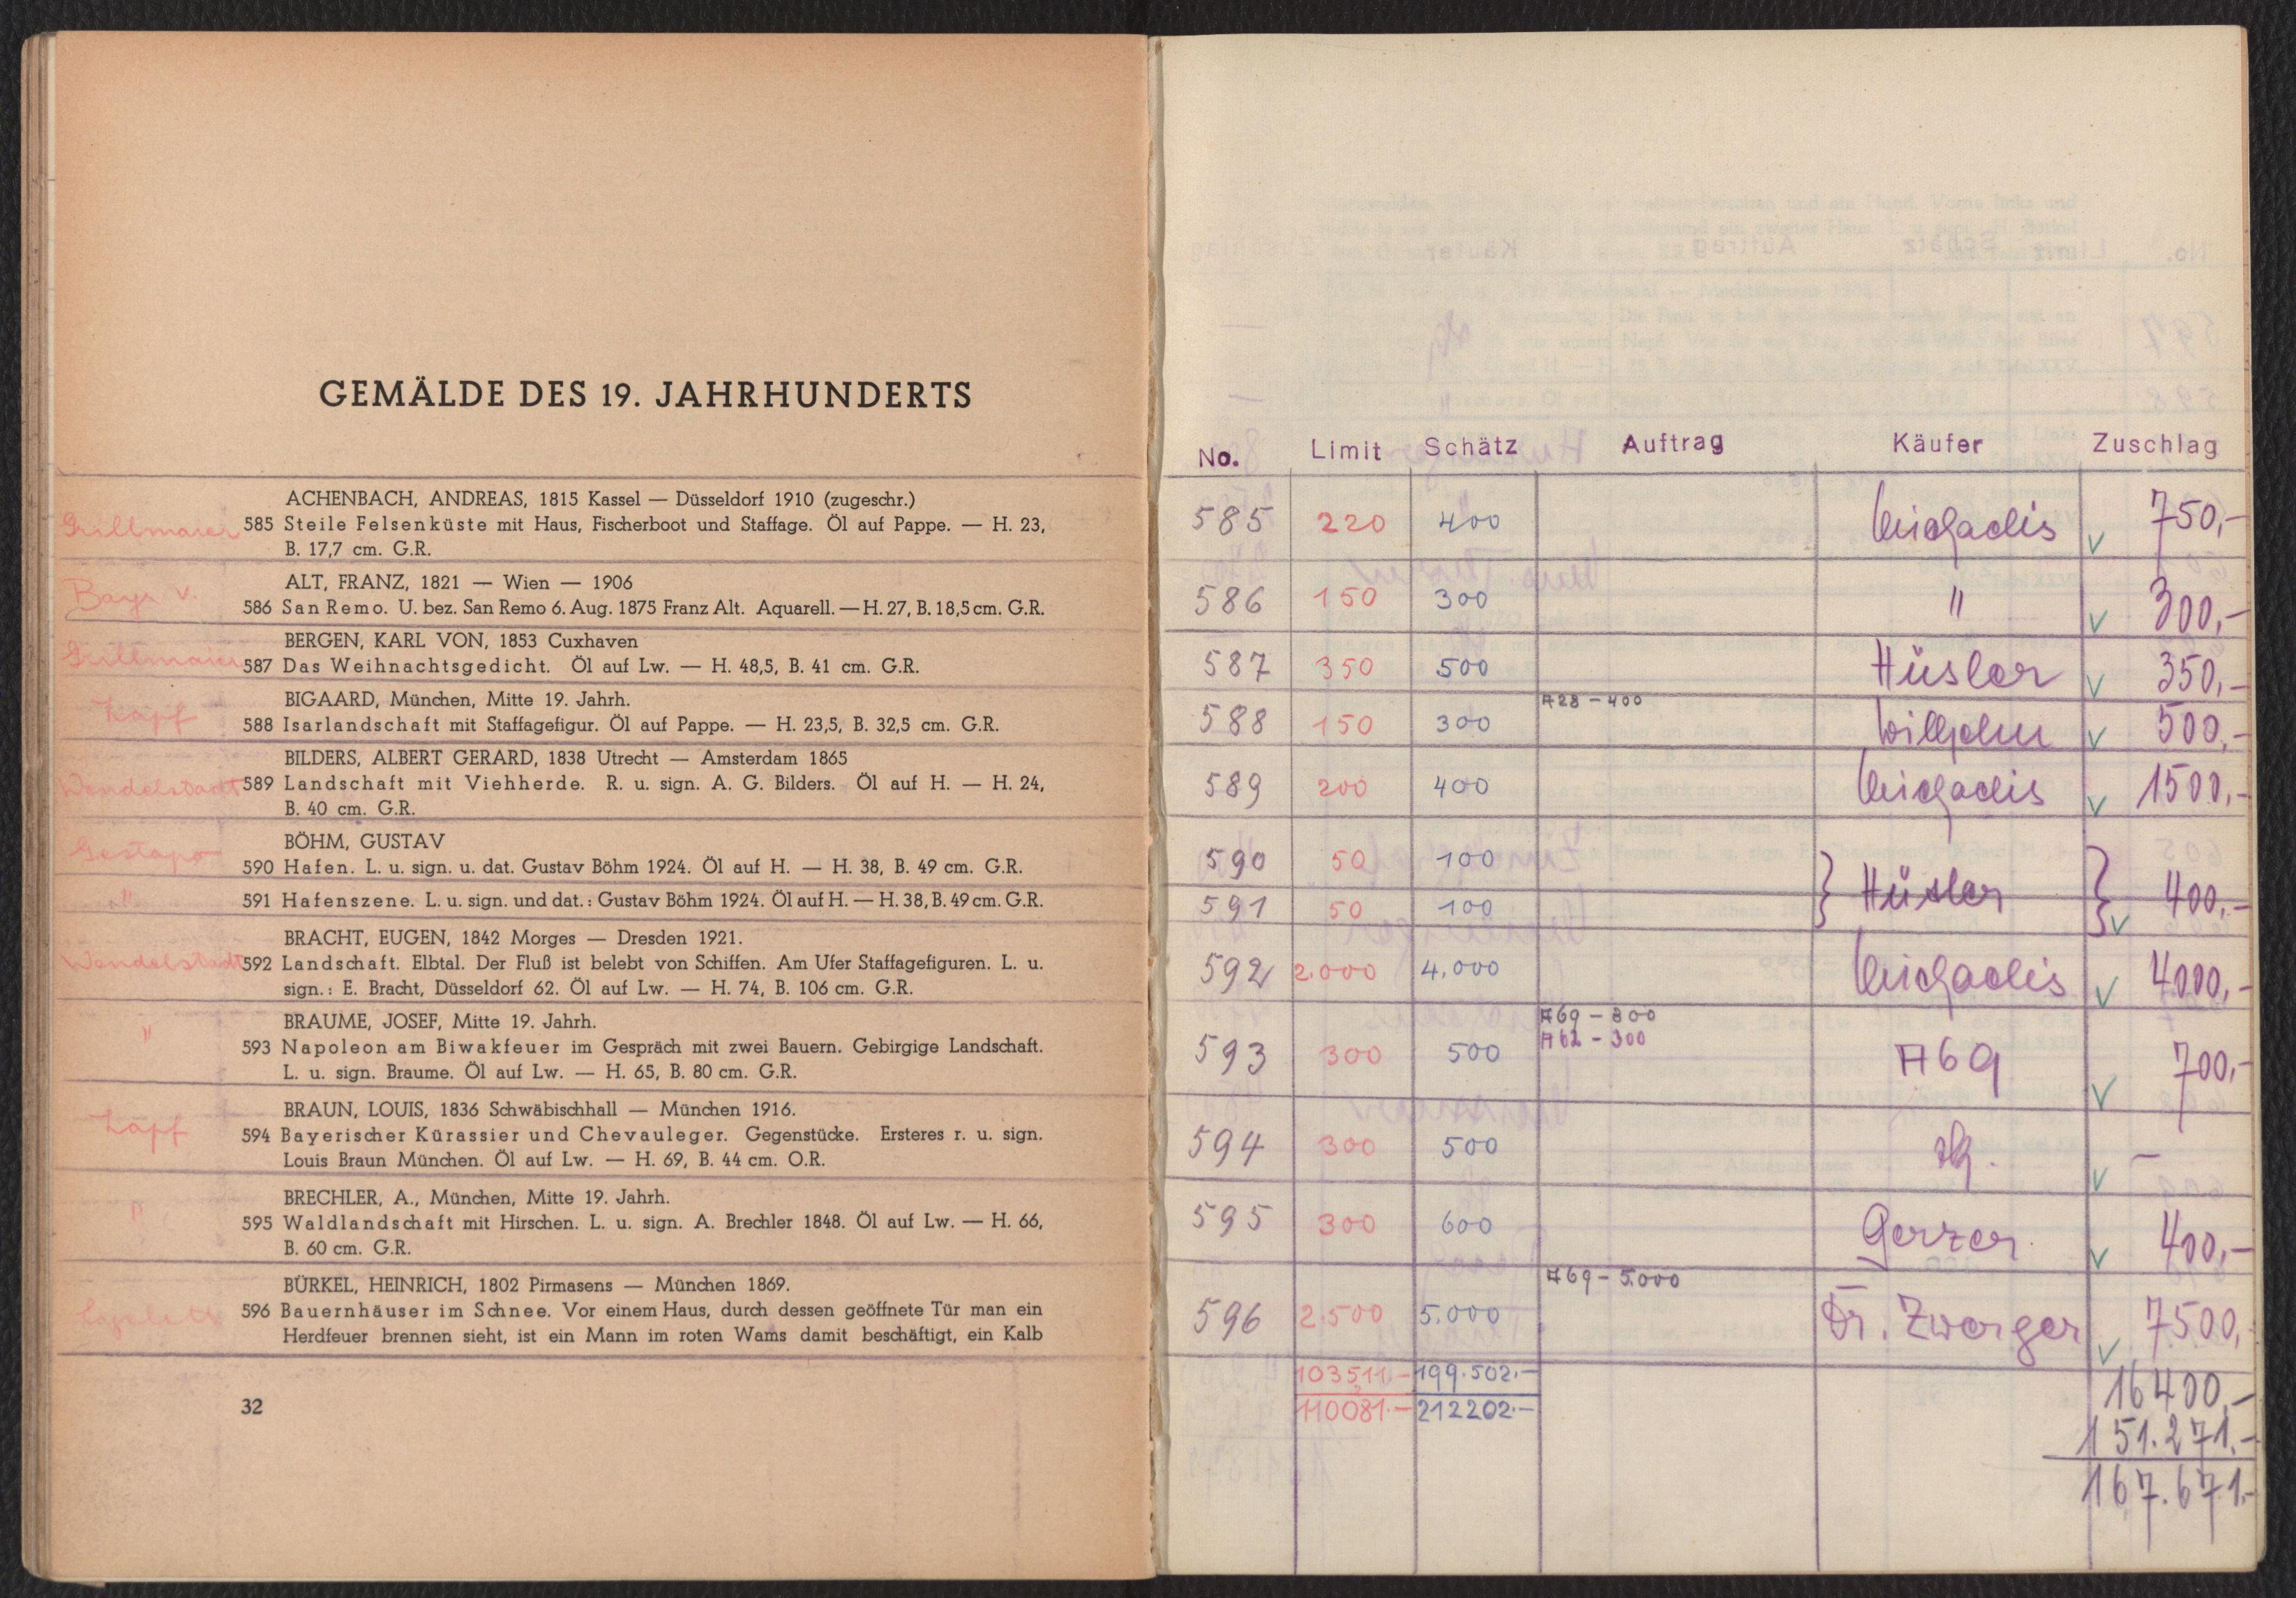 GEMÄLDE DES 19. JAHRHUNDERTS
ACHENBACH, ANDREAS, 1815 Kassel — Düsseldorf 1910 (zugeschr.)
Grillmaier 585 Steile Felsenküste mit Haus, Fischerboot und Staffage. Öl auf Pappe. — H. 23,
B. 17,7 cm. G.R.
ALT, FRANZ, 1821 — Wien — 1906
586 San Remo. U. bez. San Remo 6. Aug. 1875 Franz Alt. Aquarell. — H. 27, B. 18,5 cm. G.R.
BERGEN, KARL VON, 1853 Cuxhaven
Grillmaier 587 Das Weihnachtsgedicht. Öl auf Lw. — H. 48,5, B. 41 cm. G.R.
BIGAARD, München, Mitte 19. Jahrh.
Zapf 588 Isarlandschaft mit Staffagefigur. Öl auf Pappe. — H. 23,5, B. 32,5 cm. G.R.
BILDERS, ALBERT GERARD, 1838 Utrecht — Amsterdam 1865
Wendelstadt 589 Landschaft mit Viehherde. R. u. sign. A. G. Bilders. Öl auf H. — H. 24,
B. 40 cm. G.R.
BÖHM, GUSTAV
Gestapo 590 Hafen. L. u. sign. u. dat. Gustav Böhm 1924. Öl auf H. — H. 38, B. 49 cm. G.R.
" 591 Hafenszene. L. u. sign. und dat.: Gustav Böhm 1924. Öl auf H. — H. 38, B. 49 cm. G.R.
BRACHT, EUGEN, 1842 Morges — Dresden 1921.
Wendelstadt 592 Landschaft. Elbtal. Der Fluß ist belebt von Schiffen. Am Ufer Staffagefiguren. L. u.
sign.: E. Bracht, Düsseldorf 62. Öl auf Lw. — H. 74, B. 106 cm. G.R.
BRAUME, JOSEF, Mitte 19. Jahrh.
" 593 Napoleon am Biwakfeuer im Gespräch mit zwei Bauern. Gebirgige Landschaft.
L. u. sign. Braume. Öl auf Lw. — H. 65, B. 80 cm. G.R.
BRAUN, LOUIS, 1836 Schwäbischhall — München 1916.
Zapf 594 Bayerischer Kürassier und Chevauleger. Gegenstücke. Ersteres r. u. sign.
Louis Braun München. Öl auf Lw. — H. 69, B. 44 cm. O.R.
BRECHLER, A., München, Mitte 19. Jahrh.
" 595 Waldlandschaft mit Hirschen. L. u. sign. A. Brechler 1848. Öl auf Lw. — H. 66,
B. 60 cm. G.R.
BÜRKEL, HEINRICH, 1802 Pirmasens — München 1869.
596 Bauernhäuser im Schnee. Vor einem Haus, durch dessen geöffnete Tür man ein
Herdfeuer brennen sieht, ist ein Mann im roten Wams damit beschäftigt, ein Kalb
32
No. Limit Schätz Auftrag Käufer Zuschlag
585 220 400 Michaelis √ 750,-
586 150 300 " √ 300,-
587 350 500 Hüsler √ 350,-
A28 - 400
588 150 300 Wilhelm √ 500,-
589 200 400 Michaelis √ 1500,-
590 50 100
} Hüsler } √ 400,-
591 50 100
592 2.000 4.000 Michaelis √ 4000,-
A69 - 800
A62 - 300
593 300 500 A69 √ 700,-
594 300 500 √ —
595 300 600 Gerzer √ 400,-
A69 - 5.000
596 2.500 5.000 Dr. Zwerger √ 7500,-
103511.- 199.502.- 16400,-
110081.- 212202.- 151.271.-
167.671.-